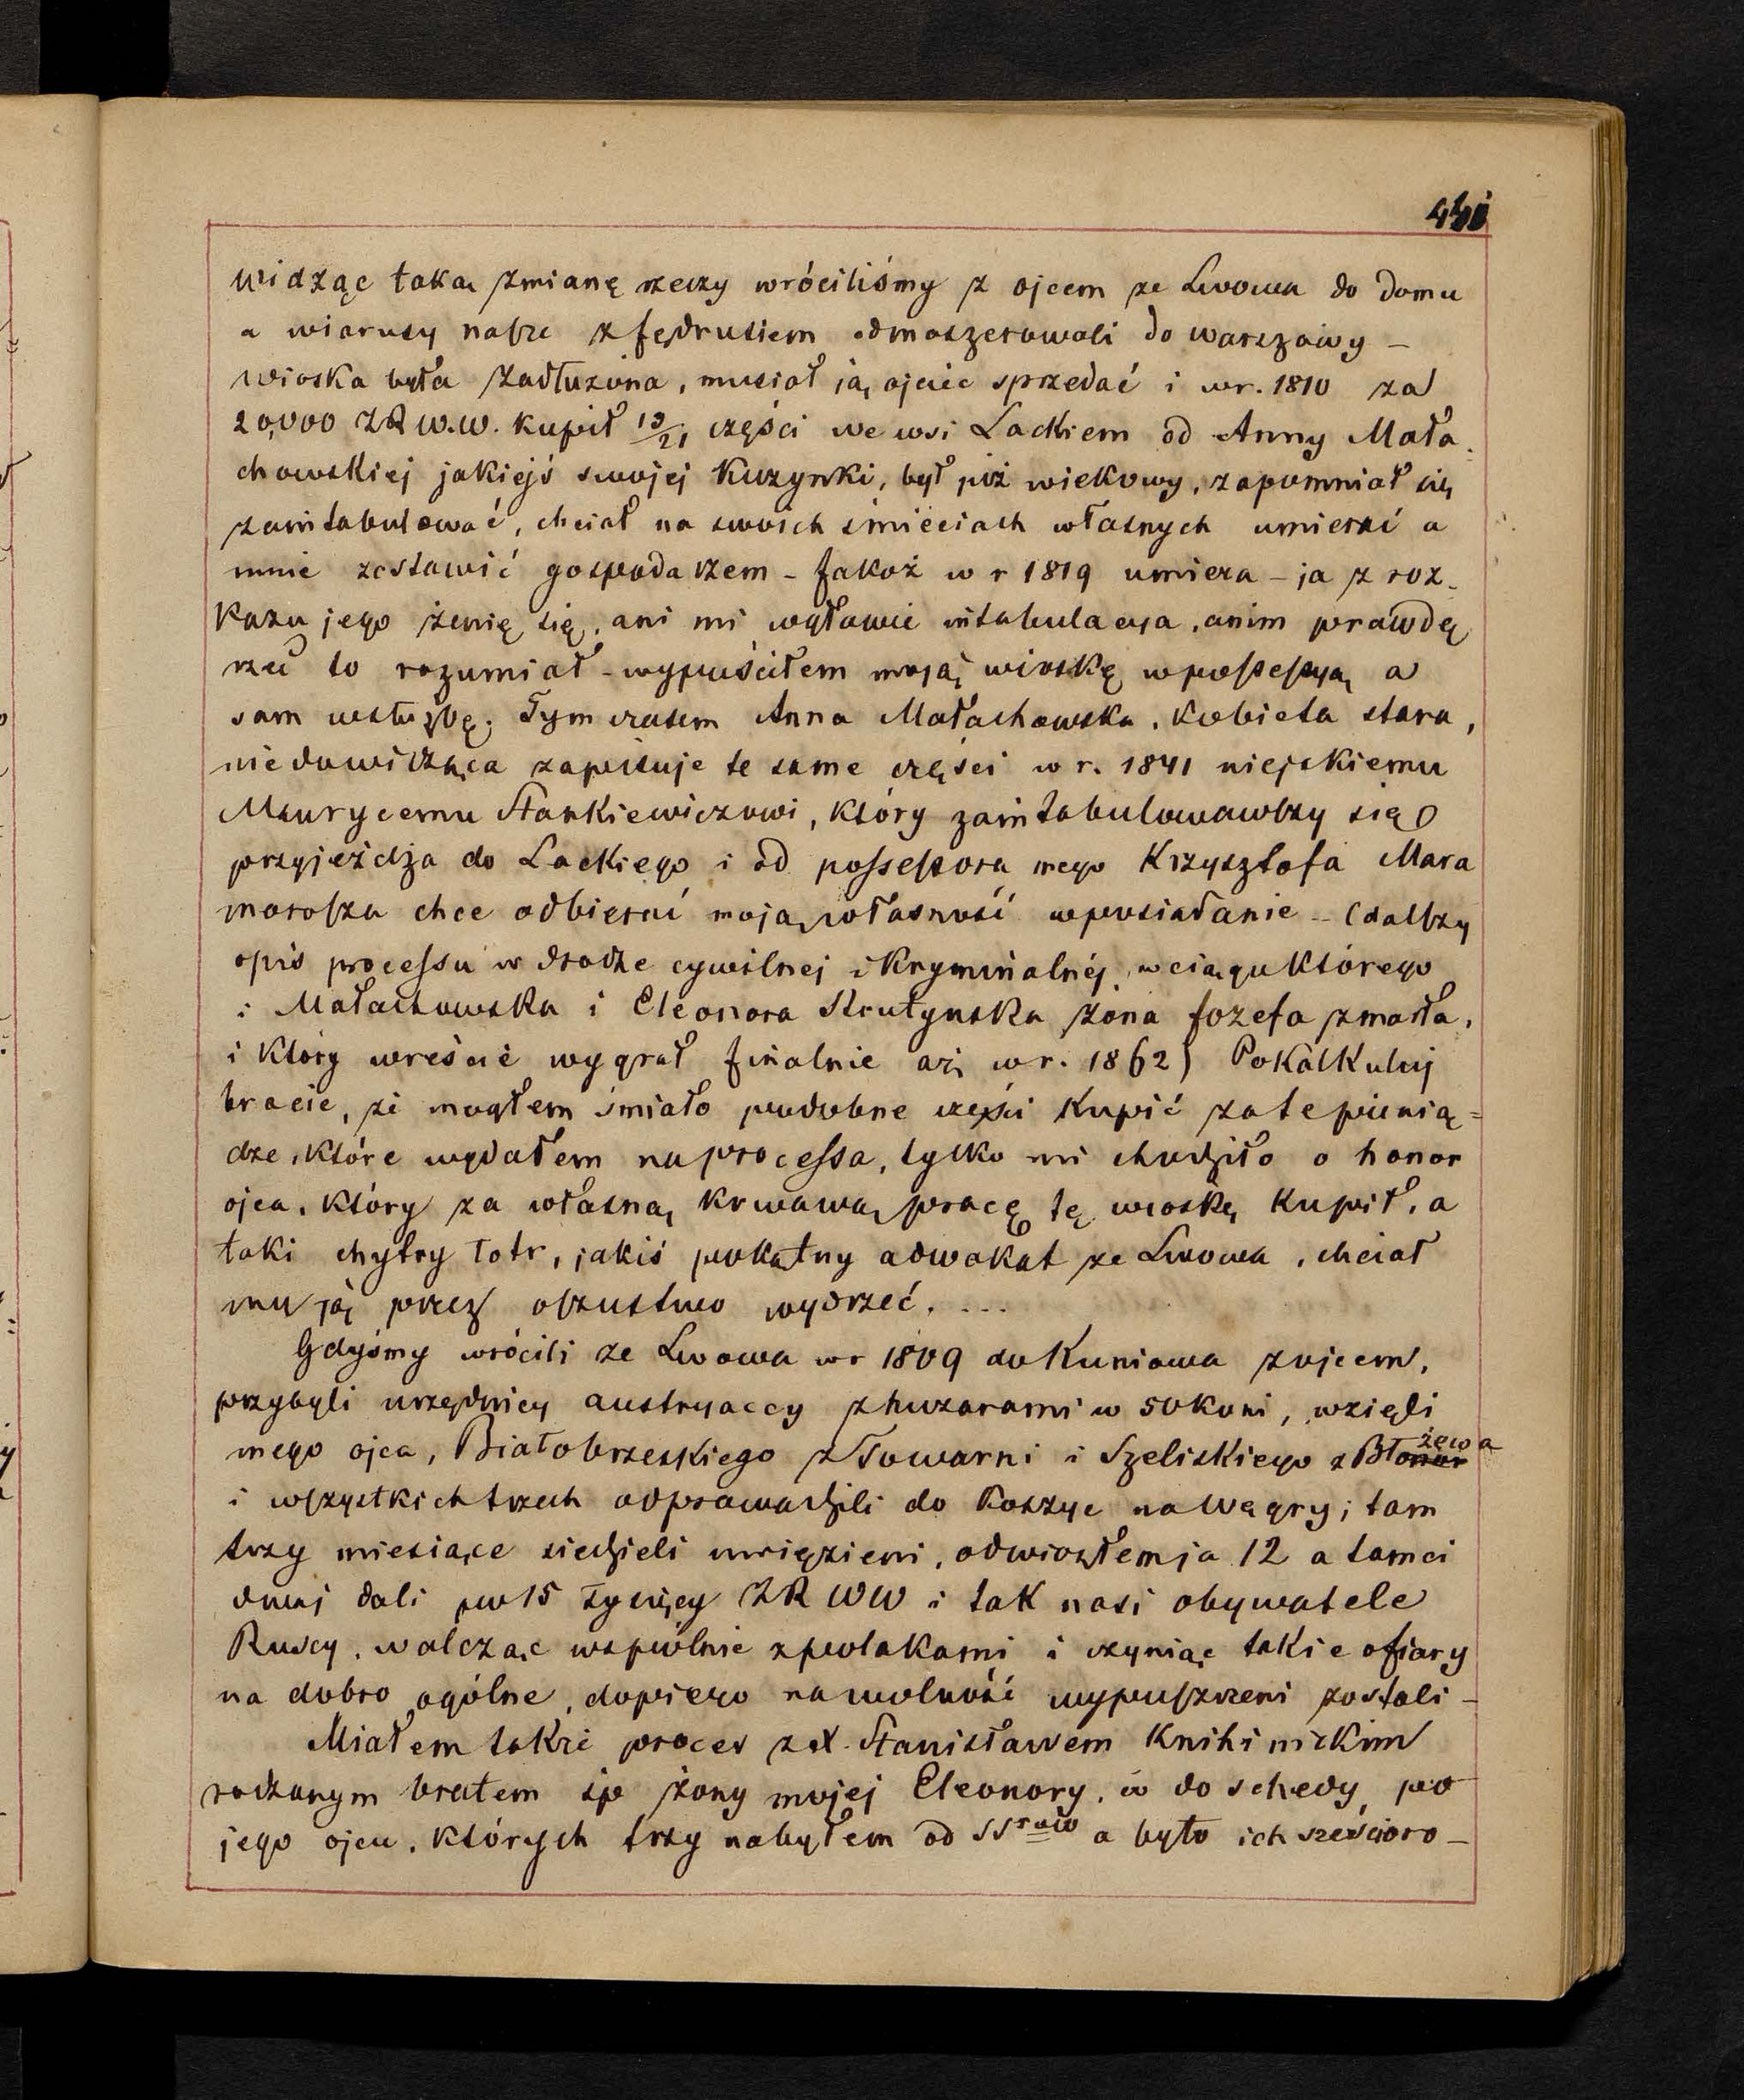 widząc taką zmianę rzeczy wróciliśmy z ojcem ze Lwowa do domu
a wiarusy nasze z Jędrusiem odmaszerowali do Warszawy –
wioska była zadłużona, musiał ją ojciec sprzedać i w r. 1810 za
20,000 ZR W.W. kupił 13/21 części we wsi Lackiem od Anny Mała
chowskiej jakiejś swojej kuzynki, był już wiekowy, zapomniał się
zaintabulować, chciał na swoich śmieciach własnych umierać a
mnie zostawić gospodarzem – Jakoż w r 1819 umiera – ja z roz-
kazu jego żenię się, ani mi w głowie intabulacya, anim prawdę
rzec to rozumiał – wypuściłem moją wioskę w possessyą a
sam w służbę. Tymczasem Anna Małachowska, kobieta stara,
niedowidząca zapisuje te same części w r. 1841 niejakiemu
Maurycemu Stankiewiczowi, który zaintabulowawszy się
przyjeżdża do Lackiego i od possessora mego Krzysztofa Mara
morosza chce odbierać moją własność w posiadanie – (dalszy
opis processu w drodze cywilnej i kryminalnéj, w ciągu którego
i Małachowska i Eleonora Krutynska żona Józefa zmarła,
i który wreście wygrał finalnie aż w r. 1862) Pokalkuluj
bracie, że mogłem śmiało podobne części kupić za te pienią=
dze, które wydałem na processa, tylko mi chodziło o honor
ojca, który za własną krwawą pracę tę wioskę kupił, a
taki chytry łotr, jakiś pokątny adwokat ze Lwowa, chciał
mu ją przez oszustwo wydrzeć. ...
Gdyśmy wrócili ze Lwowa w r 1809 do Kuniowa z ojcem,
przybyli urzędnicy austryaccy z huzarami w 50 koni, wzięli
mego ojca, Białobrzeskiego z Towarni i Szeliskiego z Błożewa
i wszystkich trzech odprowadzili do Koszyc na Węgry; tam
trzy miesiące siedzieli uwięzieni, odwiozłem ja 12 a tamci
dwaj dali po 15 tysięcy ZR WW i tak nasi obywatele
Ruscy, walcząc wspólnie z polakami i czyniąc takie ofiary
na dobro ogólne, dopiero na wolność wypuszczeni zostali –
Miałem także proces z X. Stanisławem Knihinickim
rodzonym bratem śp żony mojej Eleonory, o do schedy po
jego ojcu, których trzy nabyłem od SSrów a było ich sześcioro –